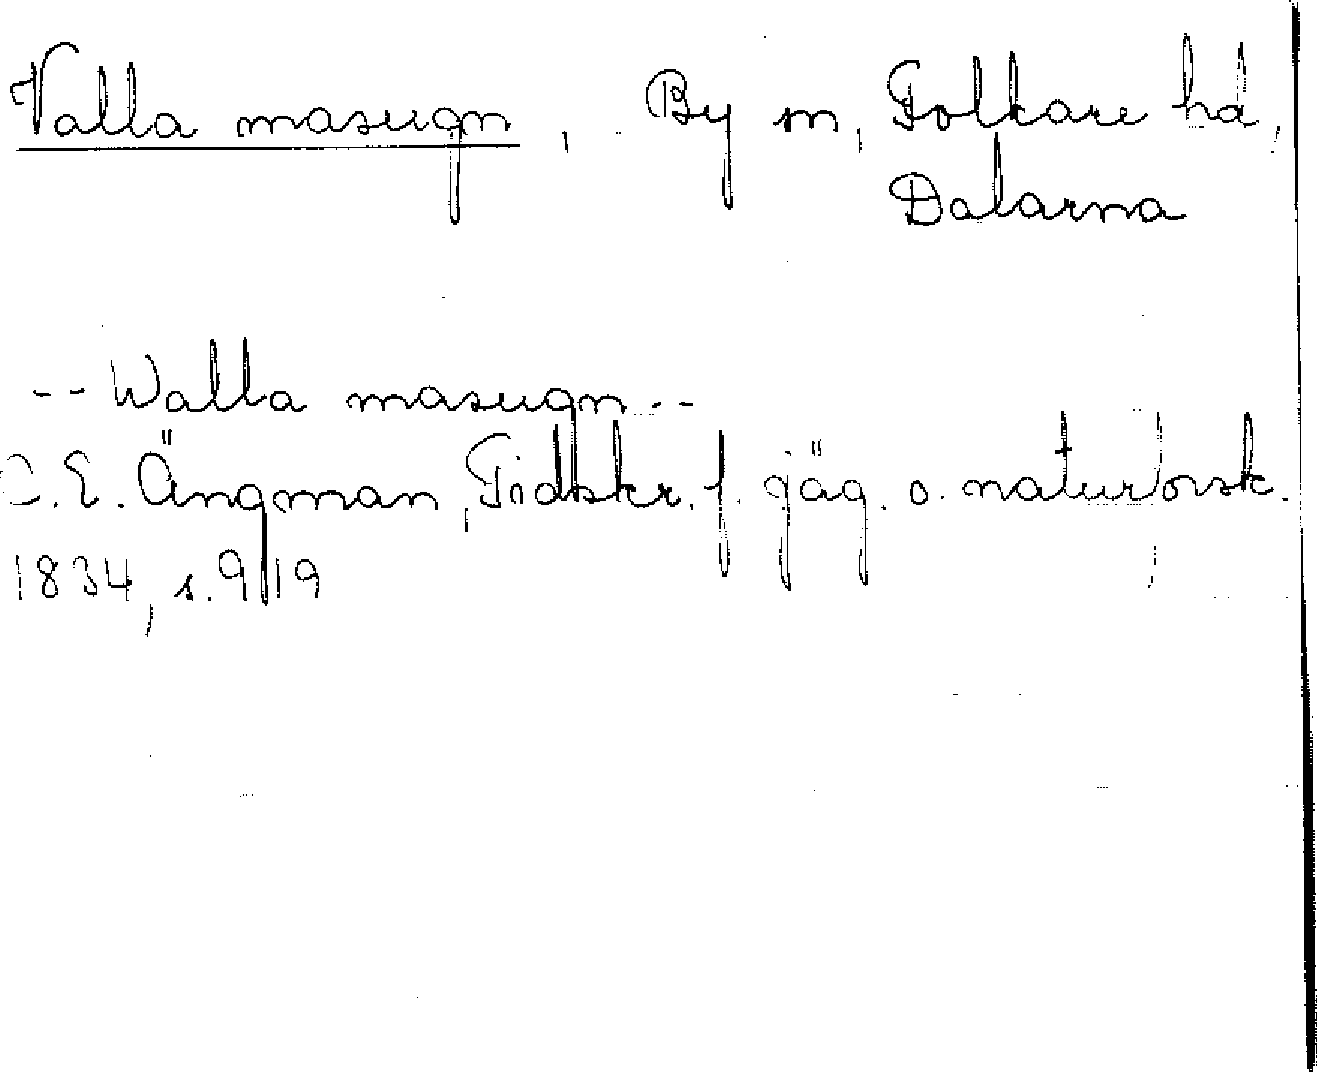 Valla masugn, By sn, Folkare hd,
Dalarna
-- Walla masugn --
C.E. Ängman, Tidskr. f. jäg. o. naturforsk.
1834, s. 919